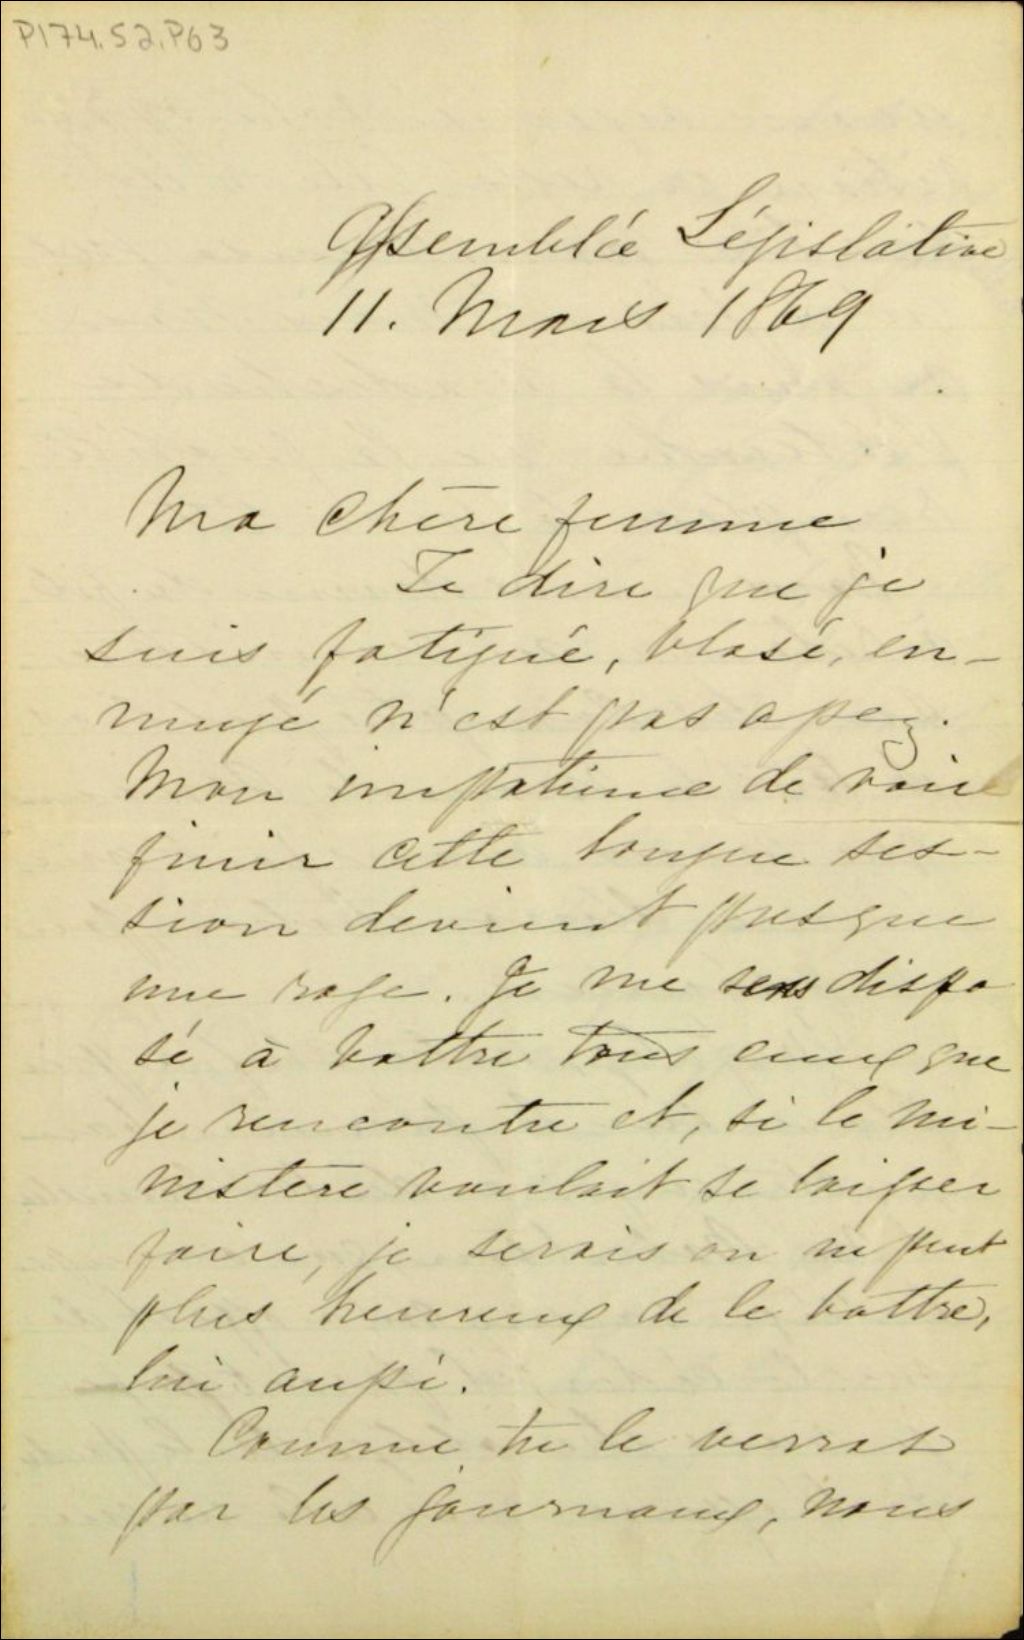 P174.S2.P63
Assemblée Législative
11. Mars 1869
Ma chère femme
Te dire que je
suis fatigué, blasé, en-
nuyé n'est pas assez.
Mon impatience de voir
finir cette longue ses-
sion devient presque
une rage. Je me sens dispo
sé à battre tous ceux que
je rencontre et, si le mi-
nistère voulait se laisser
faire, je serais on ne peut
plus heureux de le battre,
lui aussi.
Comme tu le verras
par les journaux, nous